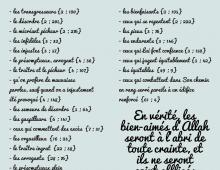 - les transgresseurs (2 : 190)
- le désordre (2 : 205)
- le mécréant pécheur (2 : 276)
- les infidèles (3 : 32)
- les injustes (3 : 57)
- le présomptueux, arrogant (4 : 36)
- le traître et le pécheur (4 : 107)
- qu'on profère de mauvaises
paroles, sauf quand on a injustement
été provoqué (4 : 148)
- les semeurs de désordre (5 : 64)
- les gaspilleurs (6 : 141)
- ceux qui commettent des excès (7 : 31)
- les orgueilleux (16 : 23)
- le traître ingrat (22 : 38)
- les arrogants (28 : 76)
- le présomptueux plein
- les bienfaisants (2 : 195)
- ceux qui se repentent (2 : 222)
- les pieux (3 : 76)
- les endurants (3 : 146)
- ceux qui Lui font confiance (3 : 159)
- ceux qui jugent équitablement (5 : 42)
- les équitables (49 : 9)
- ceux qui combattent dans Son chemin
en rang serré pareils à un édifice
renforcé (61 : 4)
En vérité, les
bien-aimés d'Allah
seront à l'abri de
toute crainte, et
ils ne seront